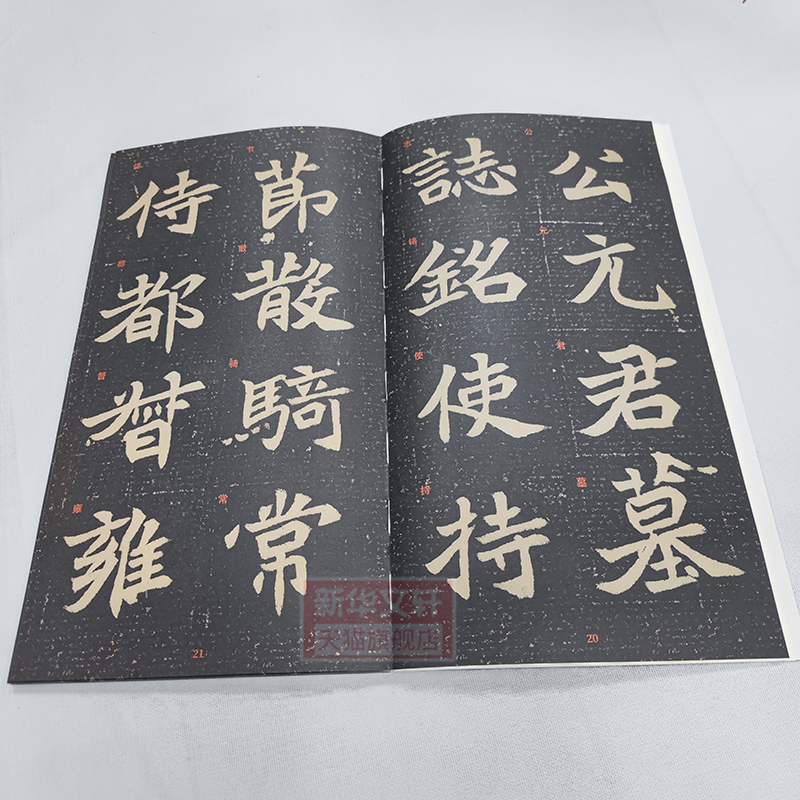 公元君墓
誌銘使持
20
節散騎常
侍都督雍
21
公
元
君
墓
志
铭
使
持
节
散
骑
常
侍
都
督
雍
新华文轩
天猫旗舰店